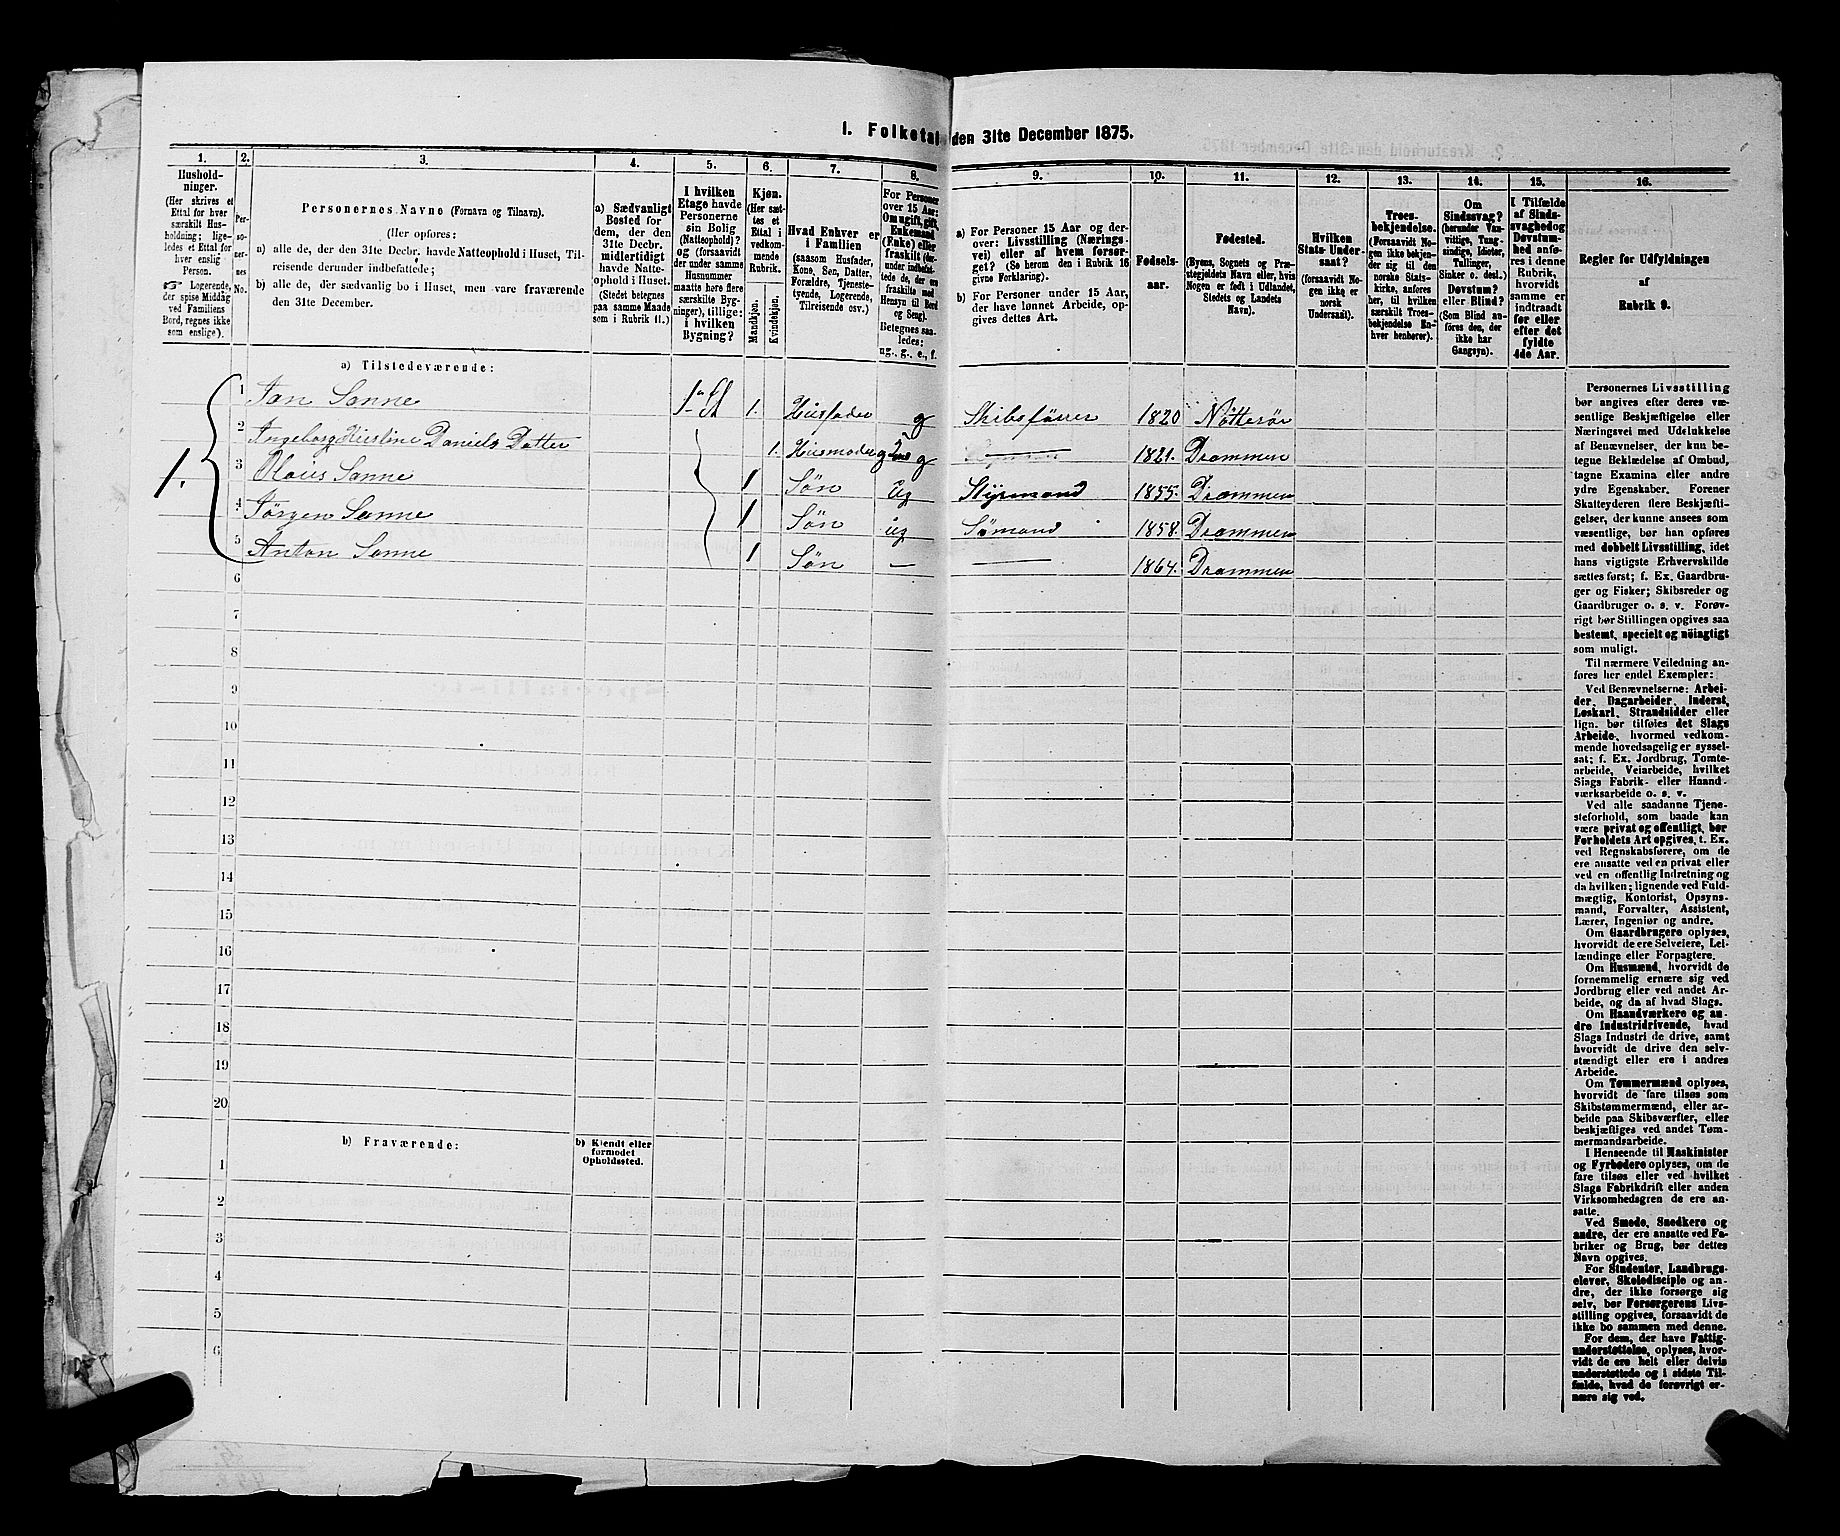 I. Folketal den 31te December 1875.
1. 2. 3. 4. 5. 6. 7. 8. 9. 10. 11. 12. 13. 14. 15. 16.
Husholdninger.
(Her skrives et
Ettal for hver
særskilt Husholdning; ligeledes et Ettal for
hver enslig
Person.
☞ Logerende,
der spise Middag
ved Familiens
Bord, regnes ikke
som enslige).
Personernes No.
Personernes Navne (Fornavn og Tilnavn).
(Her opføres:
a) alle de, der den 31te Decbr. havde Natteophold i Huset, Tilreisende derunder indbefattede;
b) alle de, der sædvanlig bo i Huset, men vare fraværende
den 31te December.
a) Sædvanligt
Bosted for
dem, der den
31te Decbr.
midlertidigt
havde Natteophold i Huset.
(Stedet betegnes
paa samme Maade
som i Rubrik 11.)
I hvilken
Etage havde
Personerne
sin Bolig
(Natteophold)?
og (forsaavidt
der under samme
Husnummer
maatte høre flere
særskilte Bygninger), tillige:
i hvilken
Bygning?
Kjøn.
(Her sættes et
Ettal i
vedkommende
Rubrik.
Mandkjøn.
Kvindekjøn.
Hvad Enhver er
i Familien
(saasom Husfader,
Kone, Søn, Datter,
Forældre, Tjenestetyende, Logerende,
Tilreisende osv.)
For Personer
over 15 Aar:
Om ugift, gift,
Enkemand
(Enke) eller
fraskilt
Betegnes saaledes:
ug., g., e., f.
a) For Personer 15 Aar og derover: Livsstilling (Næringsvei) eller af hvem forsørget? (Se herom den i Rubrik 16
givne Forklaring).
b) For Personer under 15 Aar,
der have lønnet Arbeide, opgives dettes Art.
Fødselsaar.
Fødested.
(Byens, Sognets og Præstegjeldets Navn eller, hvis
Nogen er født i Udlandet,
Stedets og Landets
Navn).
Hvilken
Stats Undersaat?
(forsaavidt Nogen ikke er
norsk
Undersaat).
Troesbekjendelse.
(Forsaavidt Nogen ikke bekjender sig til den
norske Statskirke, anføres
her, til hvilken
særskilt Troesbekjendelse Enhver henhører).
Om
Sindssvag?
(herunder Vanvittige, Tungsindige, Idioter,
Tullinger,
Sinker o. desl.)
Døvstum?
eller Blind?
(Som Blind anføres den, der
ikke har
Gangsyn).
I Tilfælde
af Sindssvaghed og
Døvstumhed anføres i denne
Rubrik,
hvorvidt
samme er
indtraadt
før eller
efter det
fyldte
4de Aar.
Regler for Udfyldningen
af
Rubrik 9.
a) Tilstedeværende:
1. 1 Jan Sanne 1ste St 1. Husfader g Skibsfører 1820 Nøtterø
2 Ingeborg Kirstine Daniels Datter 1. Husmoder g 1821. Drammen
3 Olaus Sanne 1 Søn ug Styrmand 1855. Drammen
4 Jørgen Sanne 1 Søn ug Sømand 1858. Drammen
5 Anton Sanne 1 Søn — — 1864. Drammen
6
7
8
9
10
11
12
13
14
15
16
17
18
19
20
b) Fraværende:
b) Kjendt eller
formodet
Opholdssted.
1
2
3
4
5
6
Personernes Livsstilling
bør angives efter deres væsentlige Beskjæftigelse eller
Næringsvei med Udelukkelse
af Benævnelser, der kun betegne Beklædelse af Ombud,
tagne Examina eller andre
ydre Egenskaber. Forener
Skatteyderen flere Beskjæftigelser, der kunne ansees som
væsentlige, bør han opføres
med dobbelt Livsstilling, idet
hans vigtigste Erhvervskilde
sættes først; f. Ex. Gaardbruger og Fisker; Skibsreder og
Gaardbruger o. s. v. Forøvrigt bør Stillingen opgives saa
bestemt, specielt og nöiagtigt
som muligt.
Til nærmere Veiledning anføres her endel Exempler:
Ved Benævnelserne: Arbeider, Dagarbeider, Inderst,
Løskarl, Strandsidder eller
lign. bør tilføies det Slags
Arbeide, hvormed vedkommende hovedsagelig er sysselsat; f. Ex. Jordbrug, Tomtearbeide, Veiarbeide, hvilket
Slags Fabrik- eller Haandværksarbeide o. s. v.
Ved alle saadanne Tjenesteforhold, som baade kan
være privat og offentligt, bør
Forholdets Art opgives, t. Ex.
ved Regnskabsførere, om de
ere ansatte ved en privat eller
ved en offentlig Indretning og
da hvilken; lignende ved Fuldmægtig, Kontorist, Opsynsmand, Forvalter, Assistent,
Lærer, Ingeniør og andre.
Om Gaardbrugere oplyses,
hvorvidt de ere Selveiere, Leilændinge eller Forpagtere.
Om Husmænd, hvorvidt de
fornemmelig ernære sig ved
Jordbrug eller ved andet Arbeide, og da af hvad Slags.
Om Haandværkere og andre Industridrivende, hvad
Slags Industri de drive, samt
hvorvidt de drive den selvstændigt eller ere i andres
Arbeide.
Om Tømmermænd oplyses,
hvorvidt de fare tilsøs som
Skibstømmermænd, eller arbeide paa Skibsværfter, eller
beskjæftiges ved andet Tømmermandsarbeide.
I Henseende til Maskinister
og Fyrbødere oplyses, om de
fare tilsøs eller ved hvilket
Slags Fabrikdrift eller anden
Virksomhedsgren de ere ansatte.
Ved Smede, Snedkere og
andre, der ere ansatte ved Fabriker og Brug, bør dettes
Navn opgives.
For Studenter, Landbrugselever, Skoledisciple og andre, der ikke forsørge sig
selv, bør Forsørgerens Livsstilling opgives, forsaavidt de
ikke bo sammen med denne.
For dem, der have Fattigunderstøttelse, oplyses, hvorvidt de ere helt eller delvis
understøttede og i sidste Tilfælde, hvad de forøvrigt ernære sig ved.